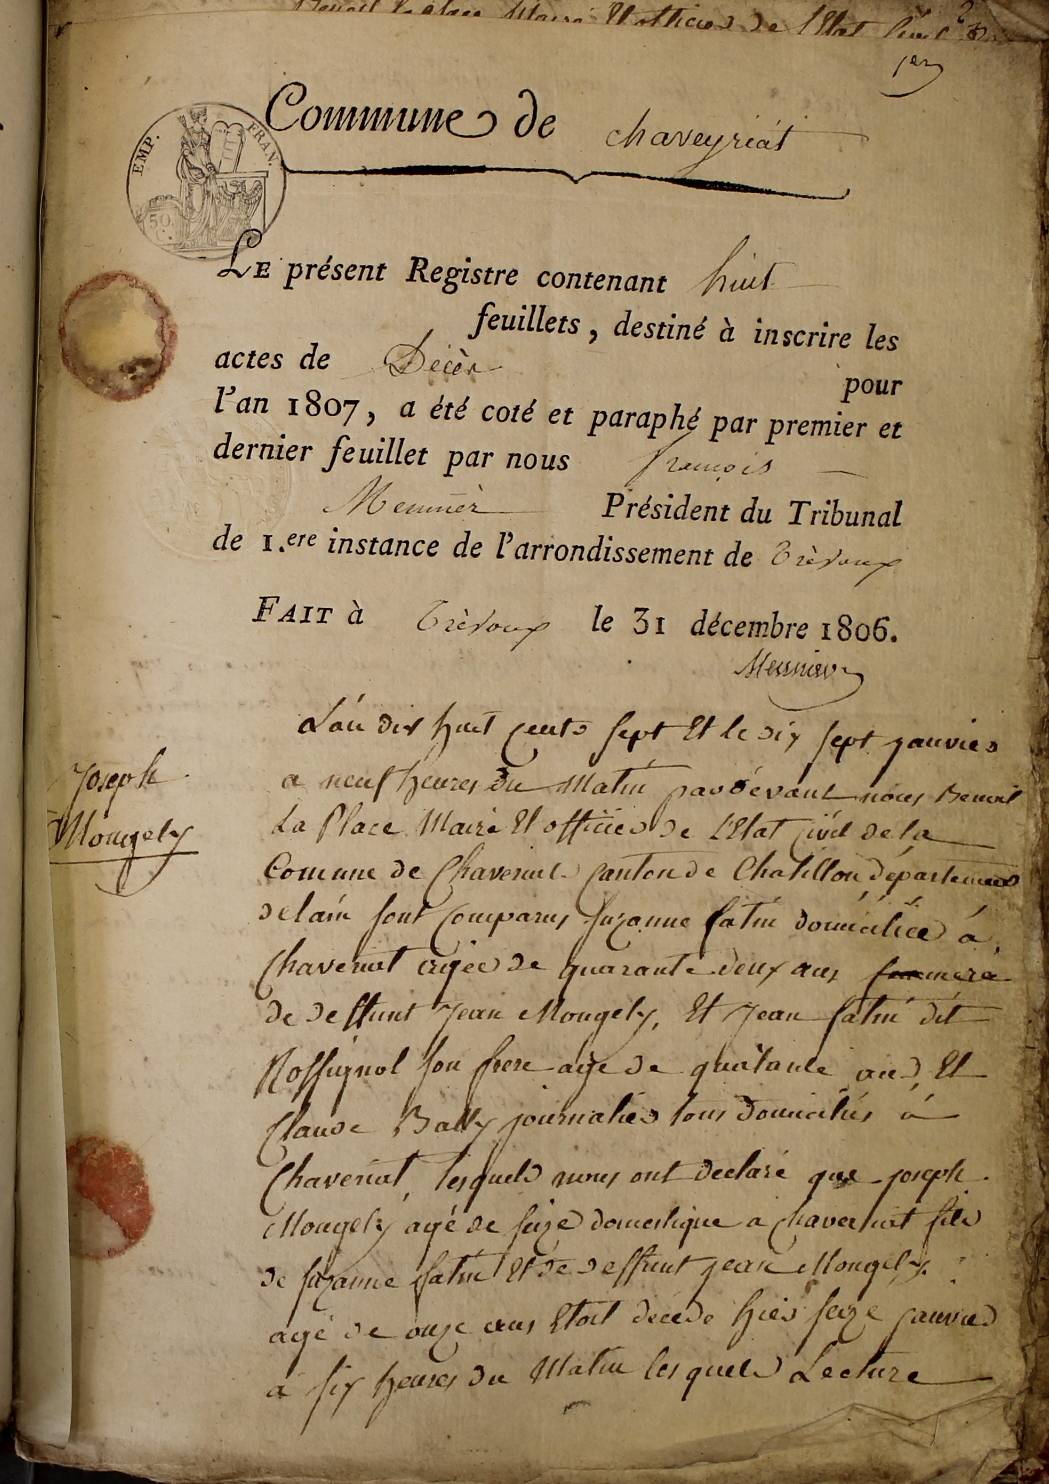 Benoit La place Maire Et officier de l'Etat Civil
1er
Commune de chaveyriat
EMP. FRAN.
50
LE présent Registre contenant huit
feuillets, destiné à inscrire les
actes de Décès pour
l'an 1807, a été coté et paraphé par premier et
dernier feuillet par nous françois
Meunier Président du Tribunal
de 1.ere instance de l'arrondissement de Trèvoux
FAIT à Trèvoux le 31 décembre 1806.
Meunier
L'an dix huit cents sept Et le dix sept janvier
a neuf heures du Matin pardevant nous Benoit
La Place Maire Et officier de L'Etat Civil de la
Comune de Chaveriat Canton de Chatillon département
de lain sont Comparus Suzanne fatin domiciliée á
Chaveriat agée de quarante deux ans mere
de deffunt Jean Mongely, Et Jean fatin dit
Rossignol son frere agé de quarante ans Et
Claude Bally journalier tous Domiciliés á
Chaveriat, lesquels nous ont declaré que joseph
Mongely agé de seize domestique a chaveriat fils
de suzanne fatin Et de deffunt jean Mongely
agé de onze ans Etoit décédé hier seize janvier
a six heures du Matin lesquels Lecture
Joseph
Mongely